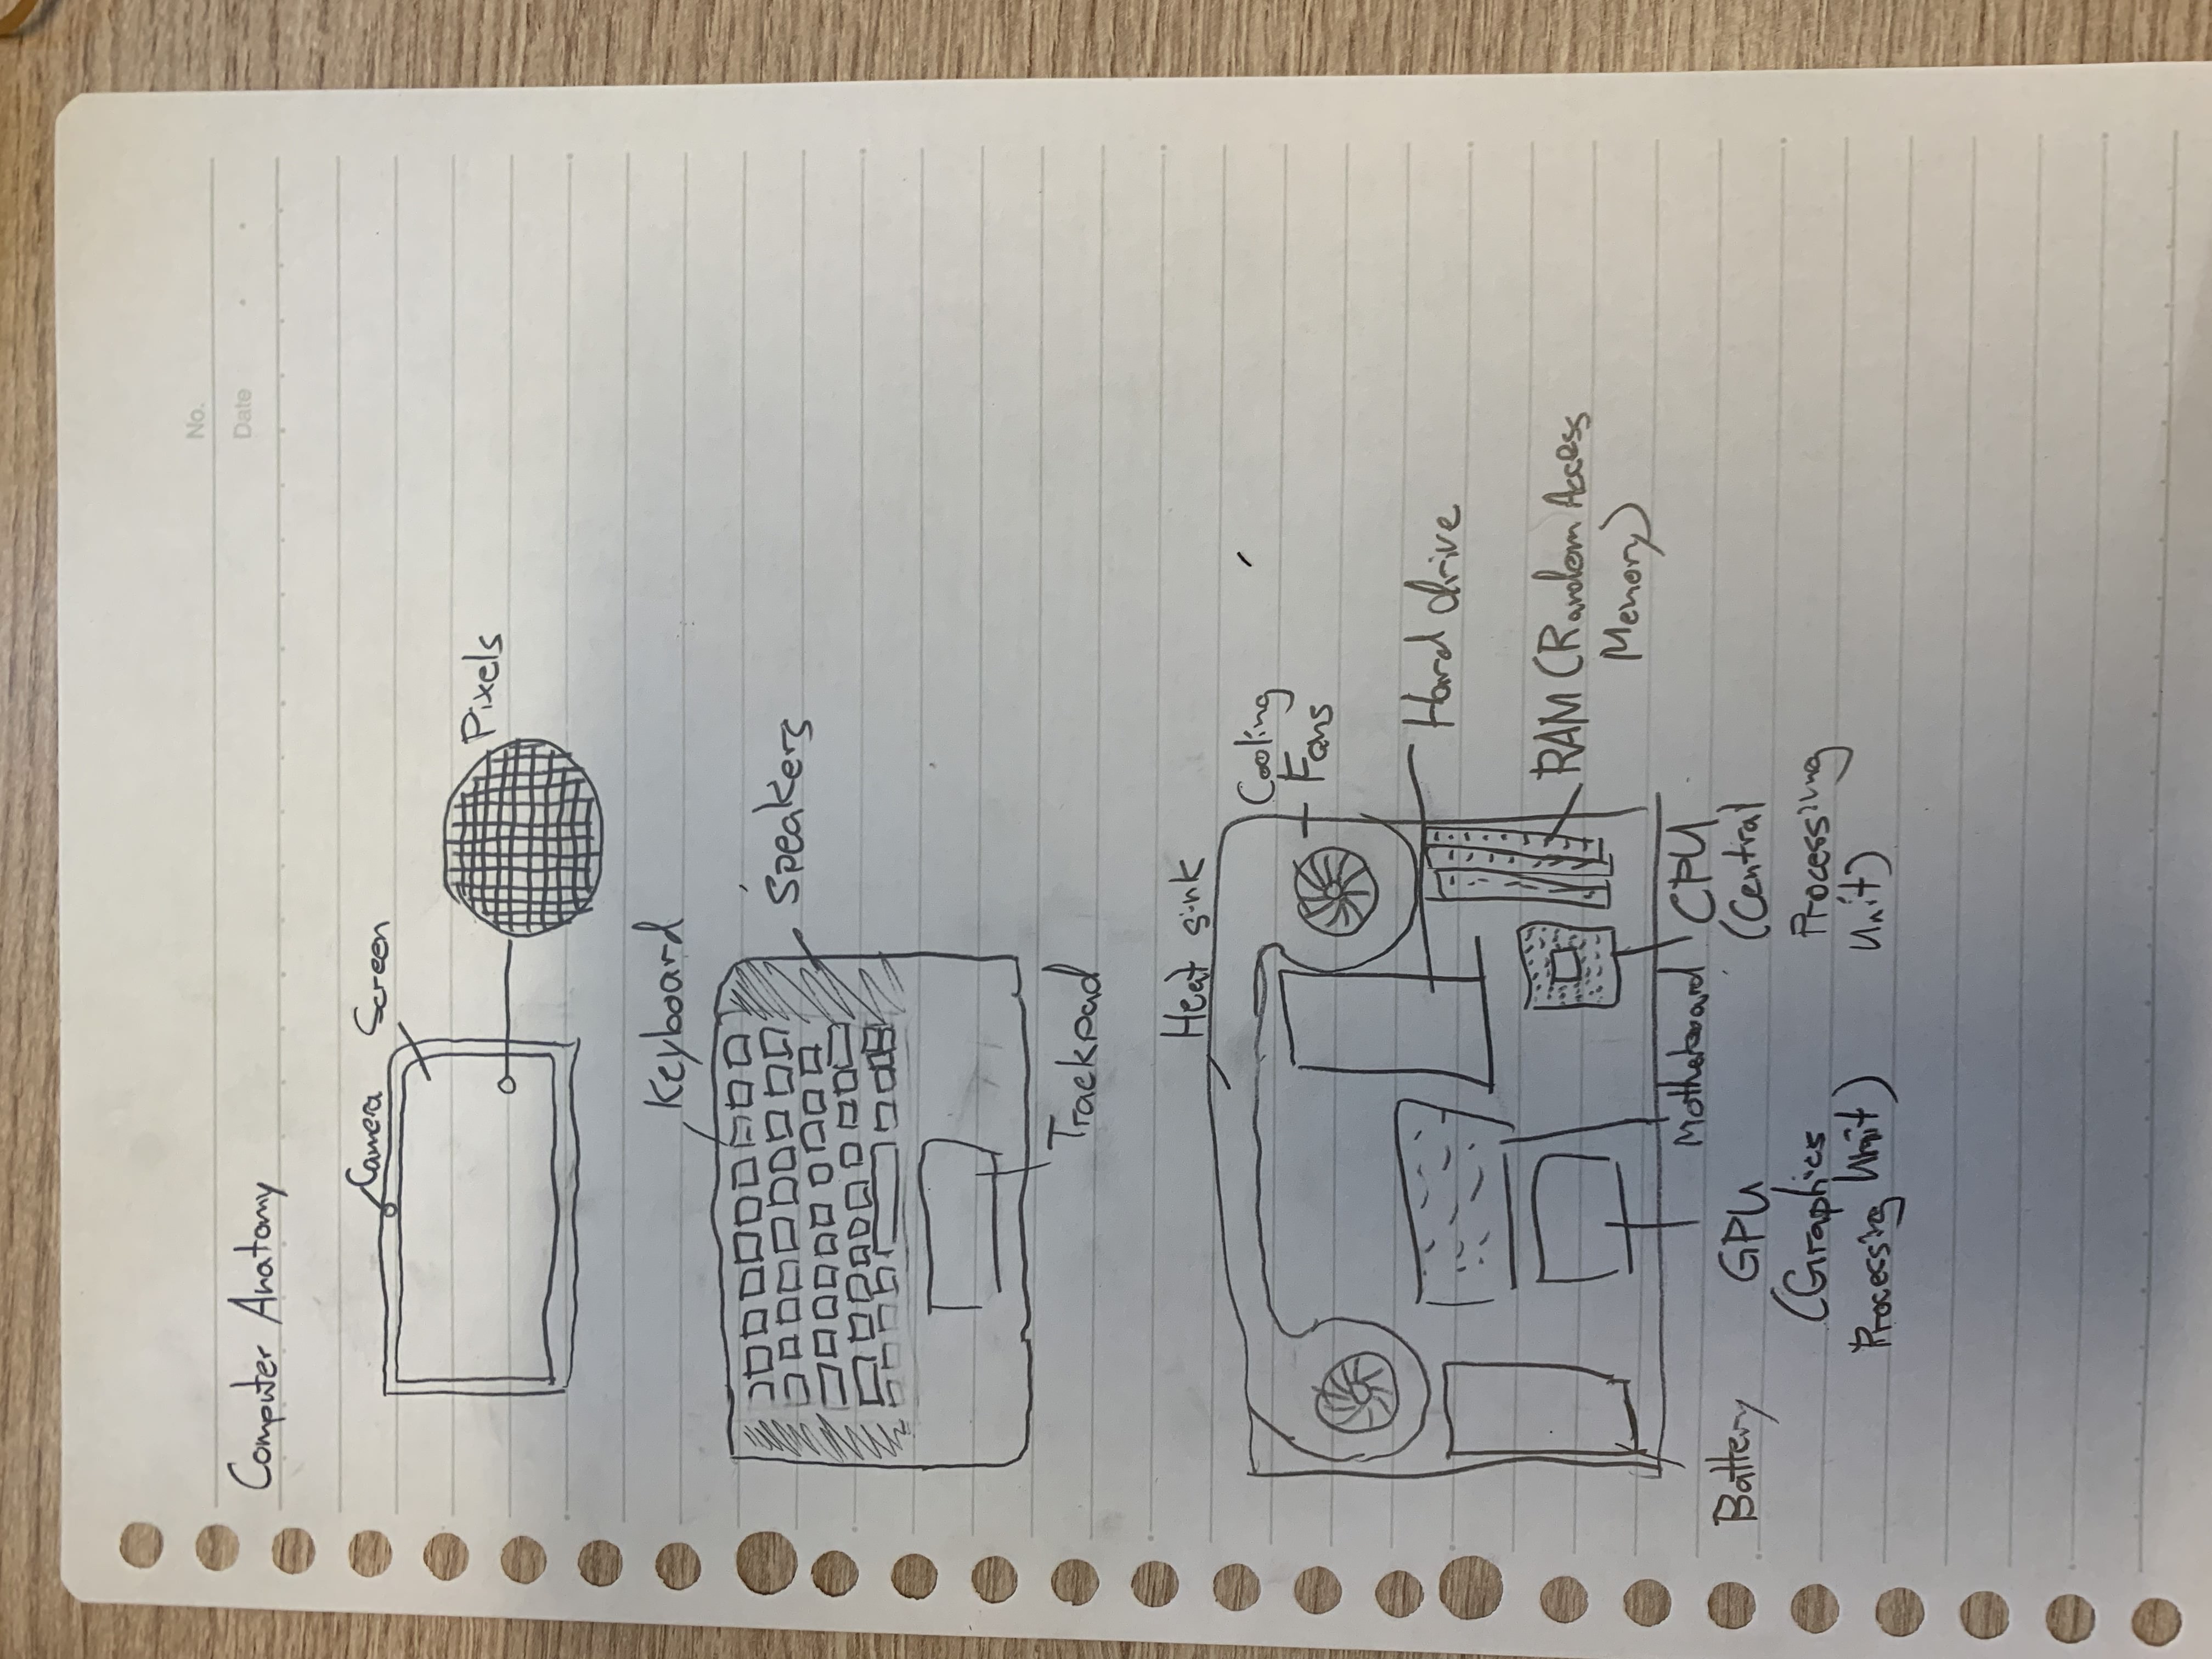 No.
Date
Computer Anatomy
Camera
Screen
Pixels
Keyboard
Speakers
Trackpad
Heat sink
Cooling
Fans
Hard drive
RAM (Random Access
Memory)
Motherboard
CPU
(Central
Processiung
Unit)
Battery
GPU
(Graphics
Processing Unit)